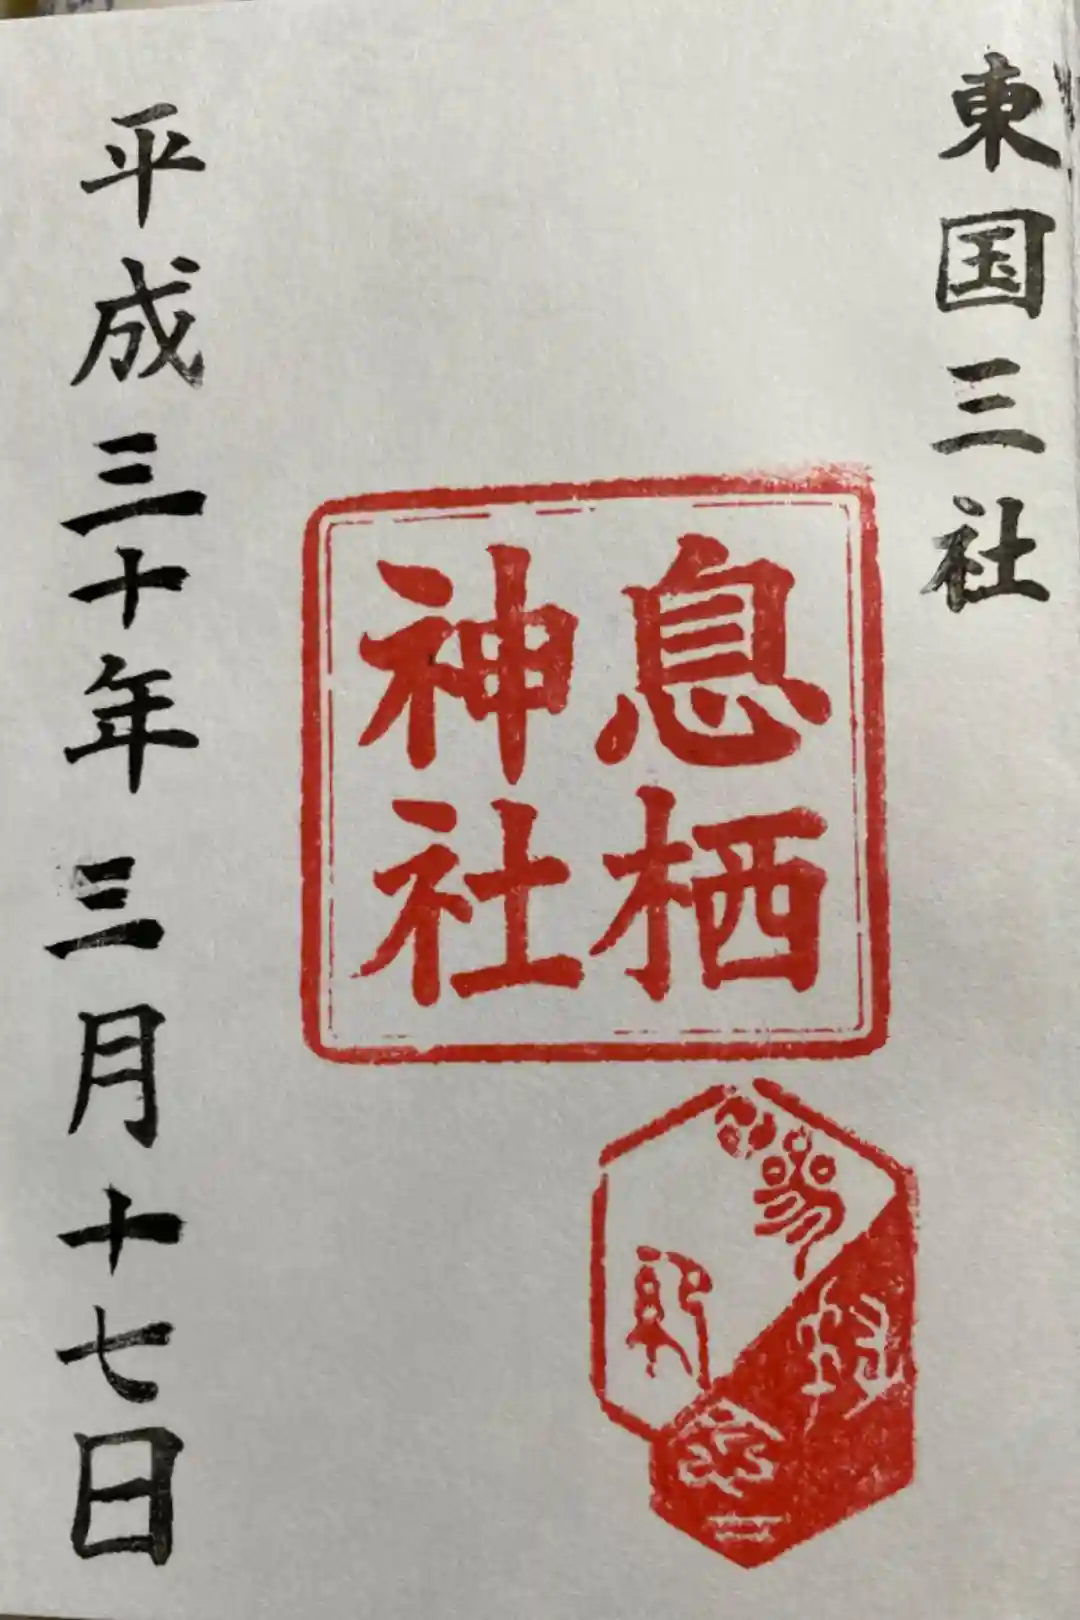 東国三社
息栖
神社
平成三十年三月十七日